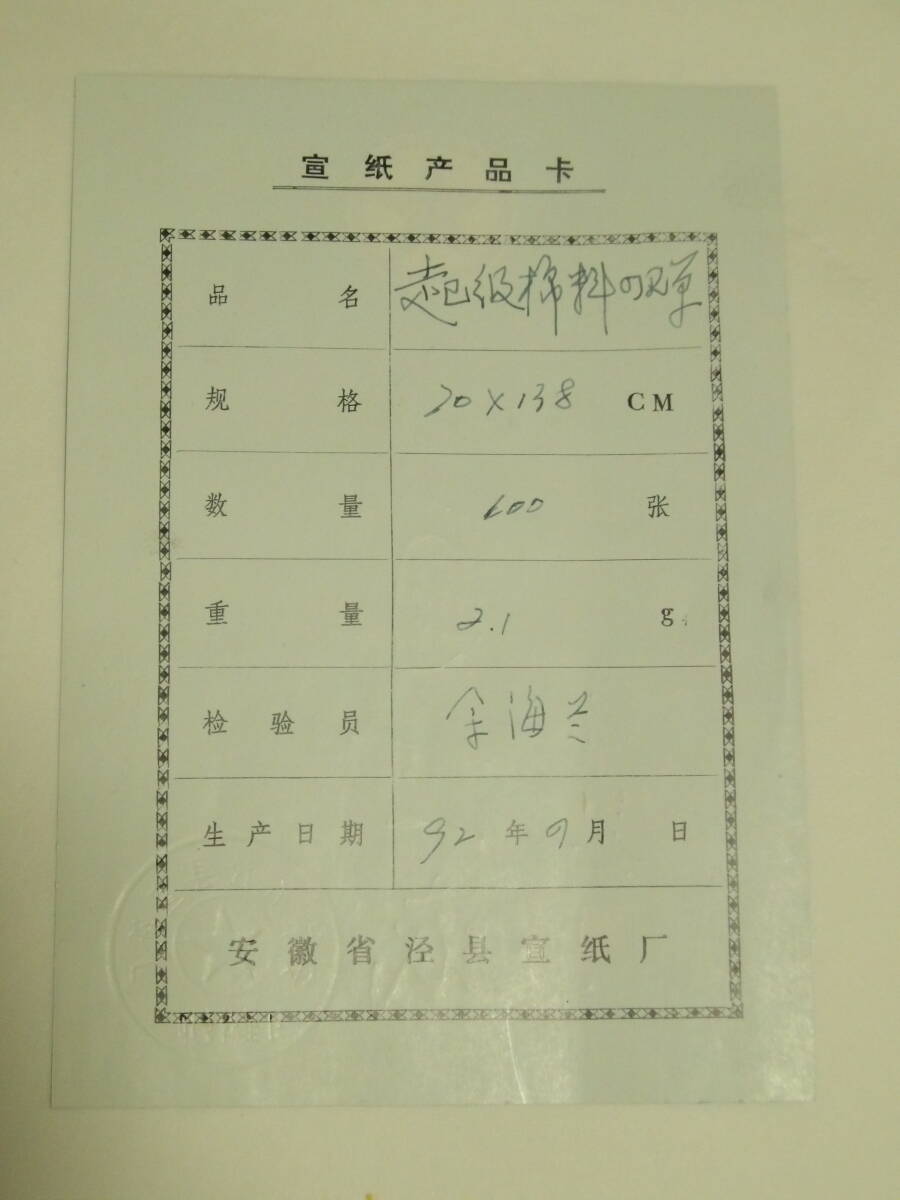 宣纸产品卡
品名 超级棉料四尺单
规格 70×138 CM
数量 100 张
重量 2.1 g
检验员 余海兰
生产日期 92年9月 日
安徽省泾县宣纸厂